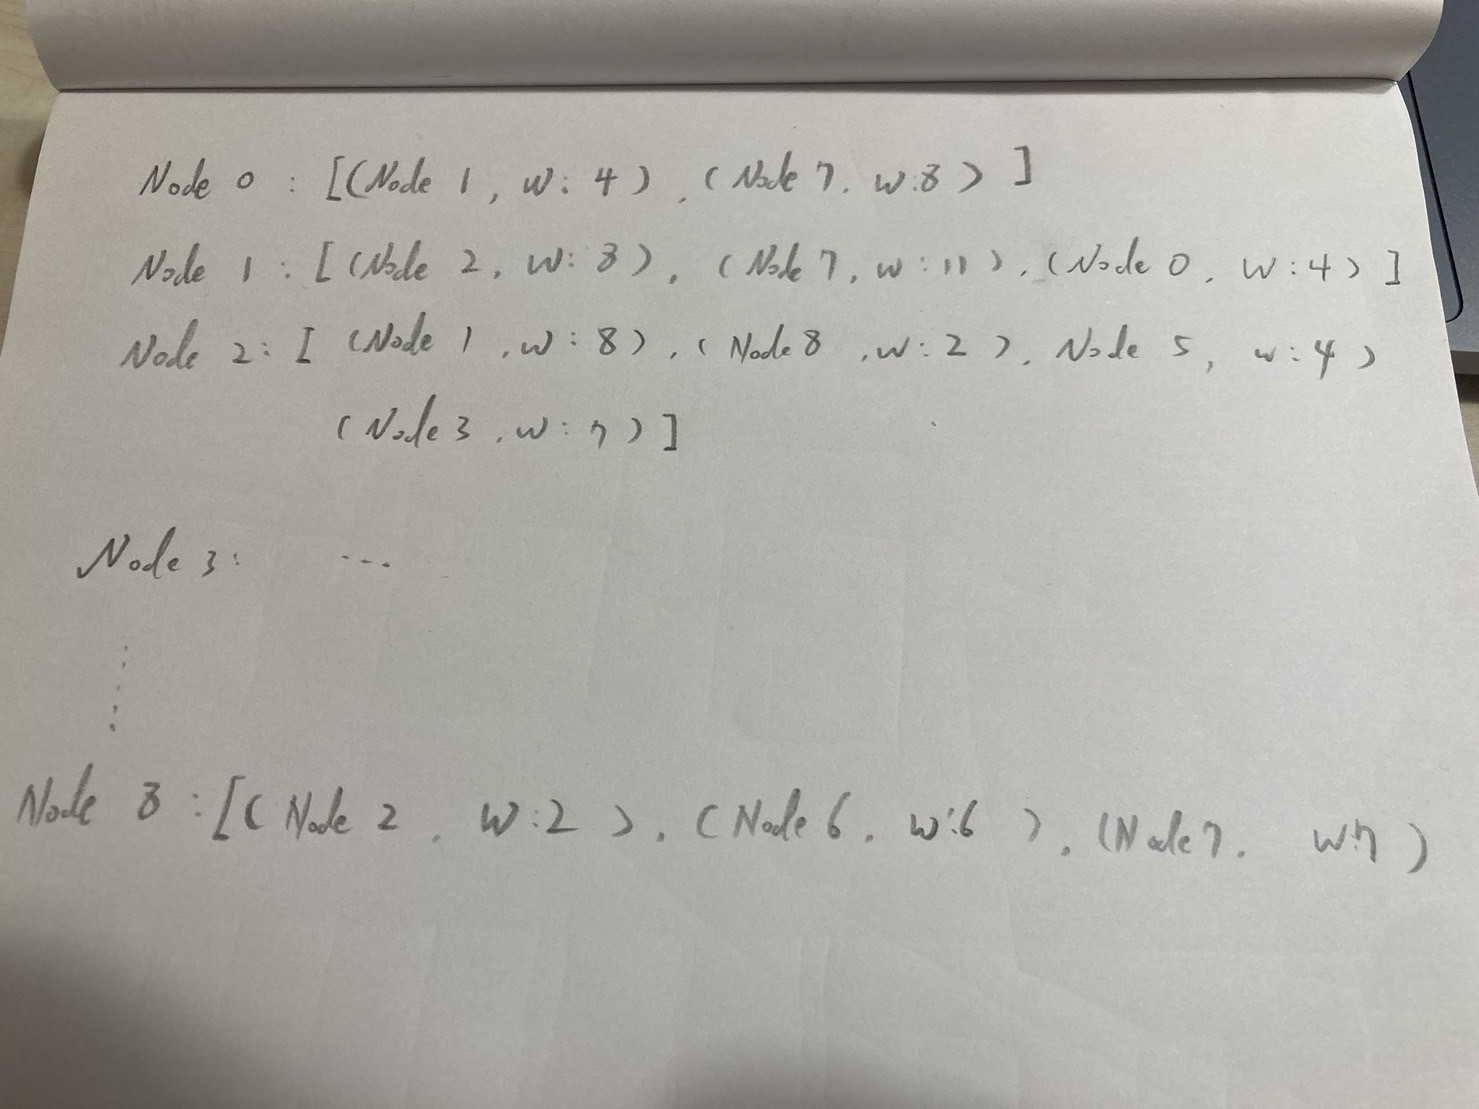 Node 0 : [(Node 1, w: 4), (Node 7, w:8)]
Node 1 : [(Node 2, w: 8), (Node 7, w: 11), (Node 0, w:4)]
Node 2: [(Node 1, w: 8), (Node 8, w: 2), Node 5, w: 4)
(Node 3, w: 7)]
Node 3: ...
Node 8 :[(Node 2, w:2), (Node 6, w:6), (Node 7, w:7)